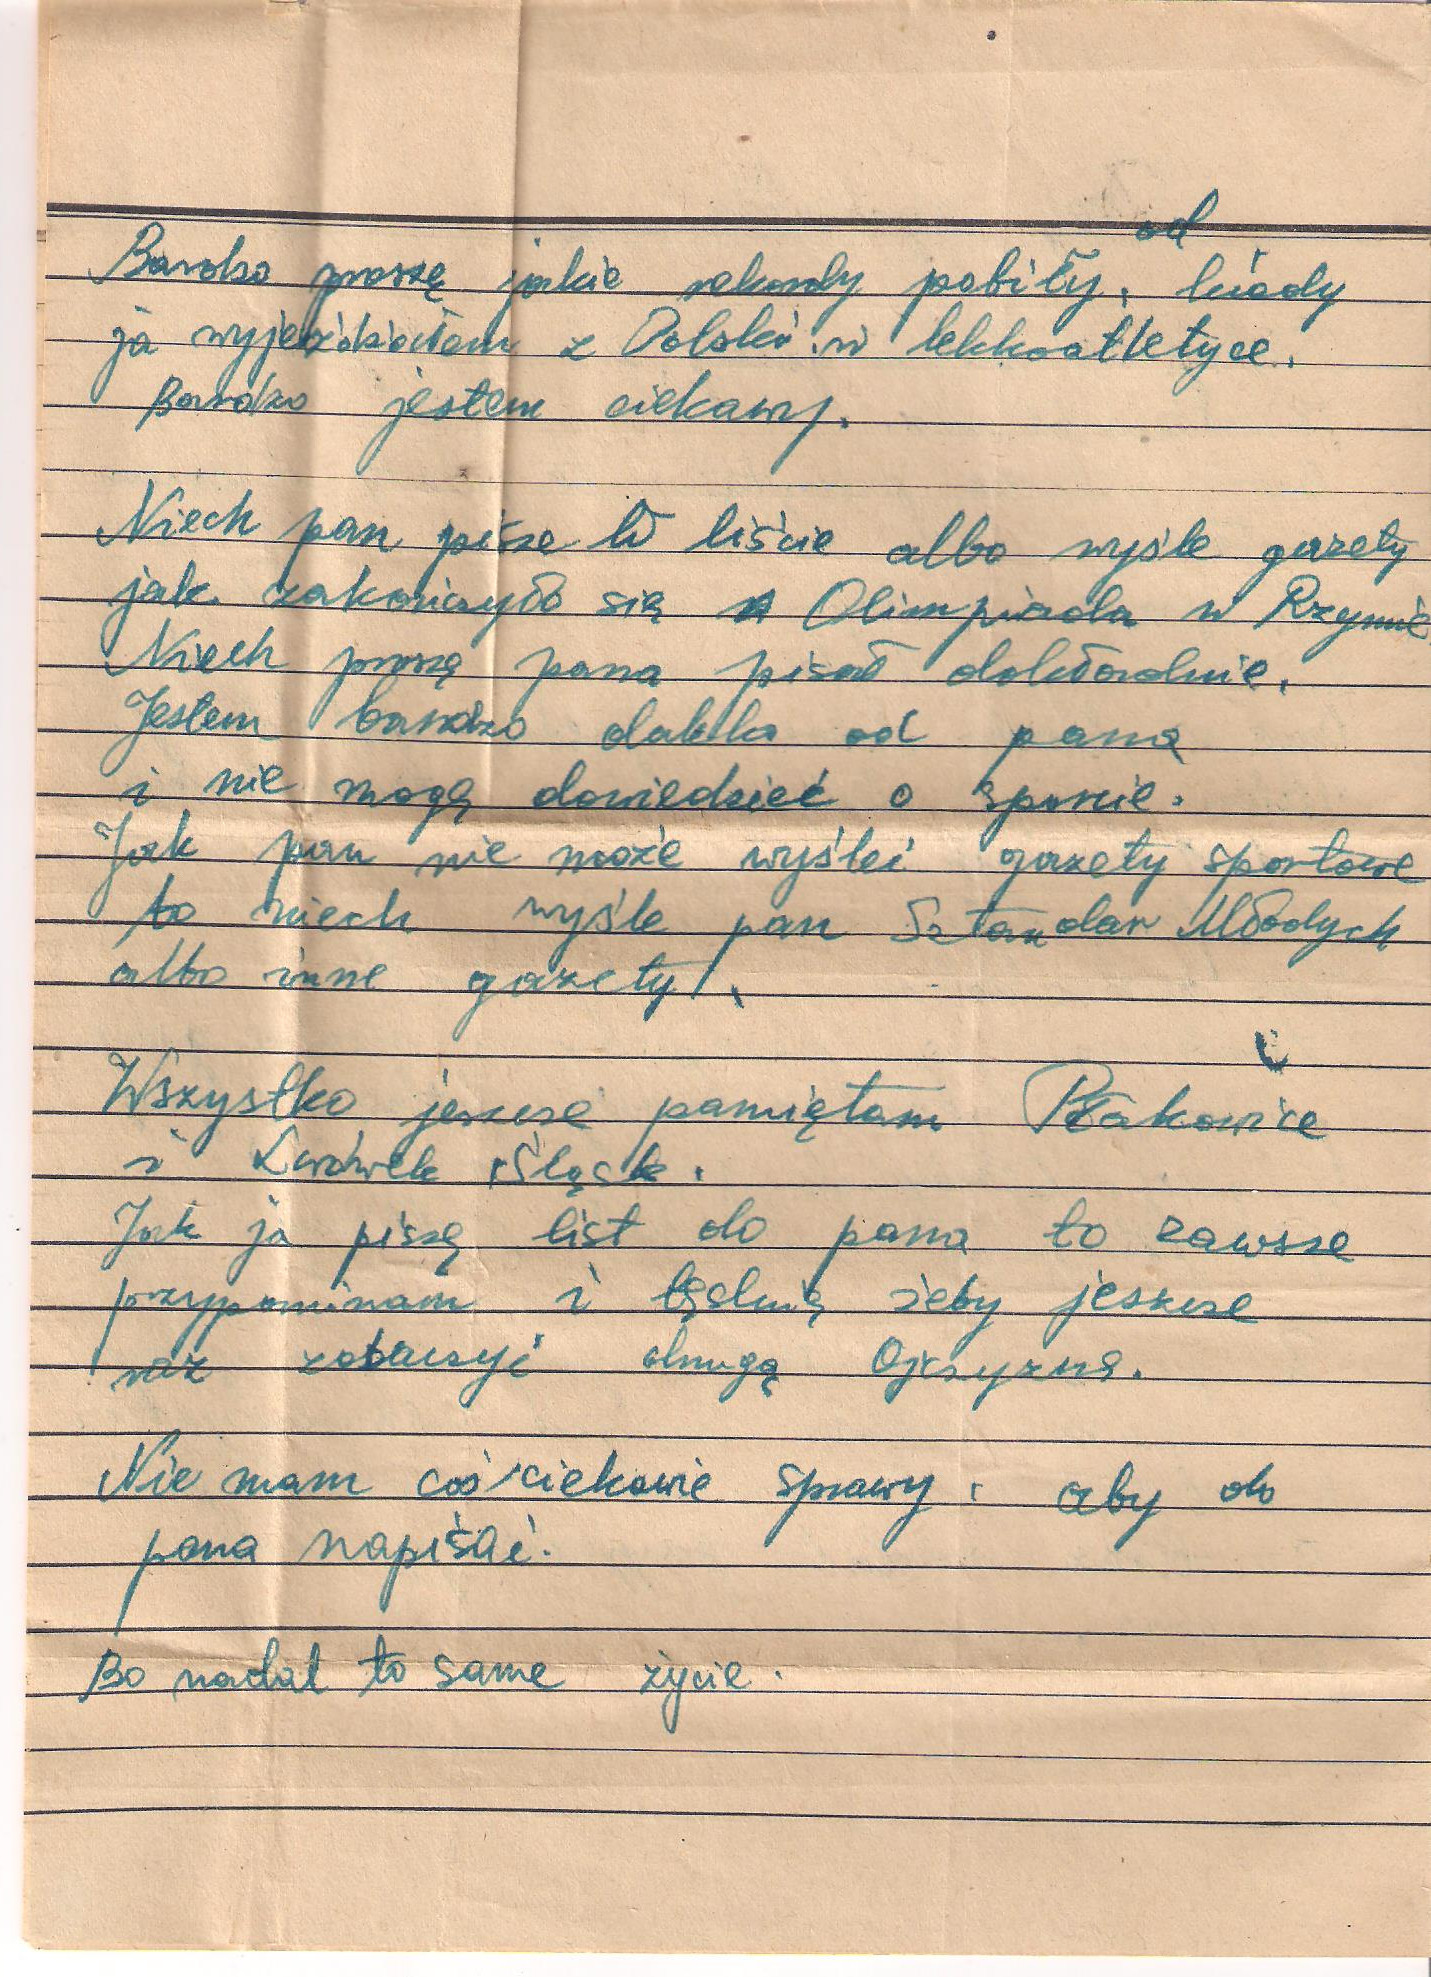 od
Bardzo proszę jakie rekordy pobiły, kiedy
ja wyjeżdżałem z Polski w lekkoatletyce.
Bardzo jestem ciekawy.
Niech pan pisze w liście albo wyśle gazety
jak zakończyło się Olimpiada w Rzymie
Niech proszę pana pisał dokładnie.
Jestem bardzo daleko od pana
i nie mogę dowiedzieć o sporcie.
Jak pan nie może wyśleć gazety sportowe
to niech wyśle pan Sztandar Młodych
albo inne gazety.
Wszystko jeszcze pamiętam Płakowice
i Lwówek Śląsk.
Jak ja piszę list do pana to zawsze
przypominam i tęsknię żeby jeszcze
raz zobaczyć drugą Ojczyznę.
Nie mam coś ciekawie sprawy, aby do
pana napisać.
Bo nadal to same życie.